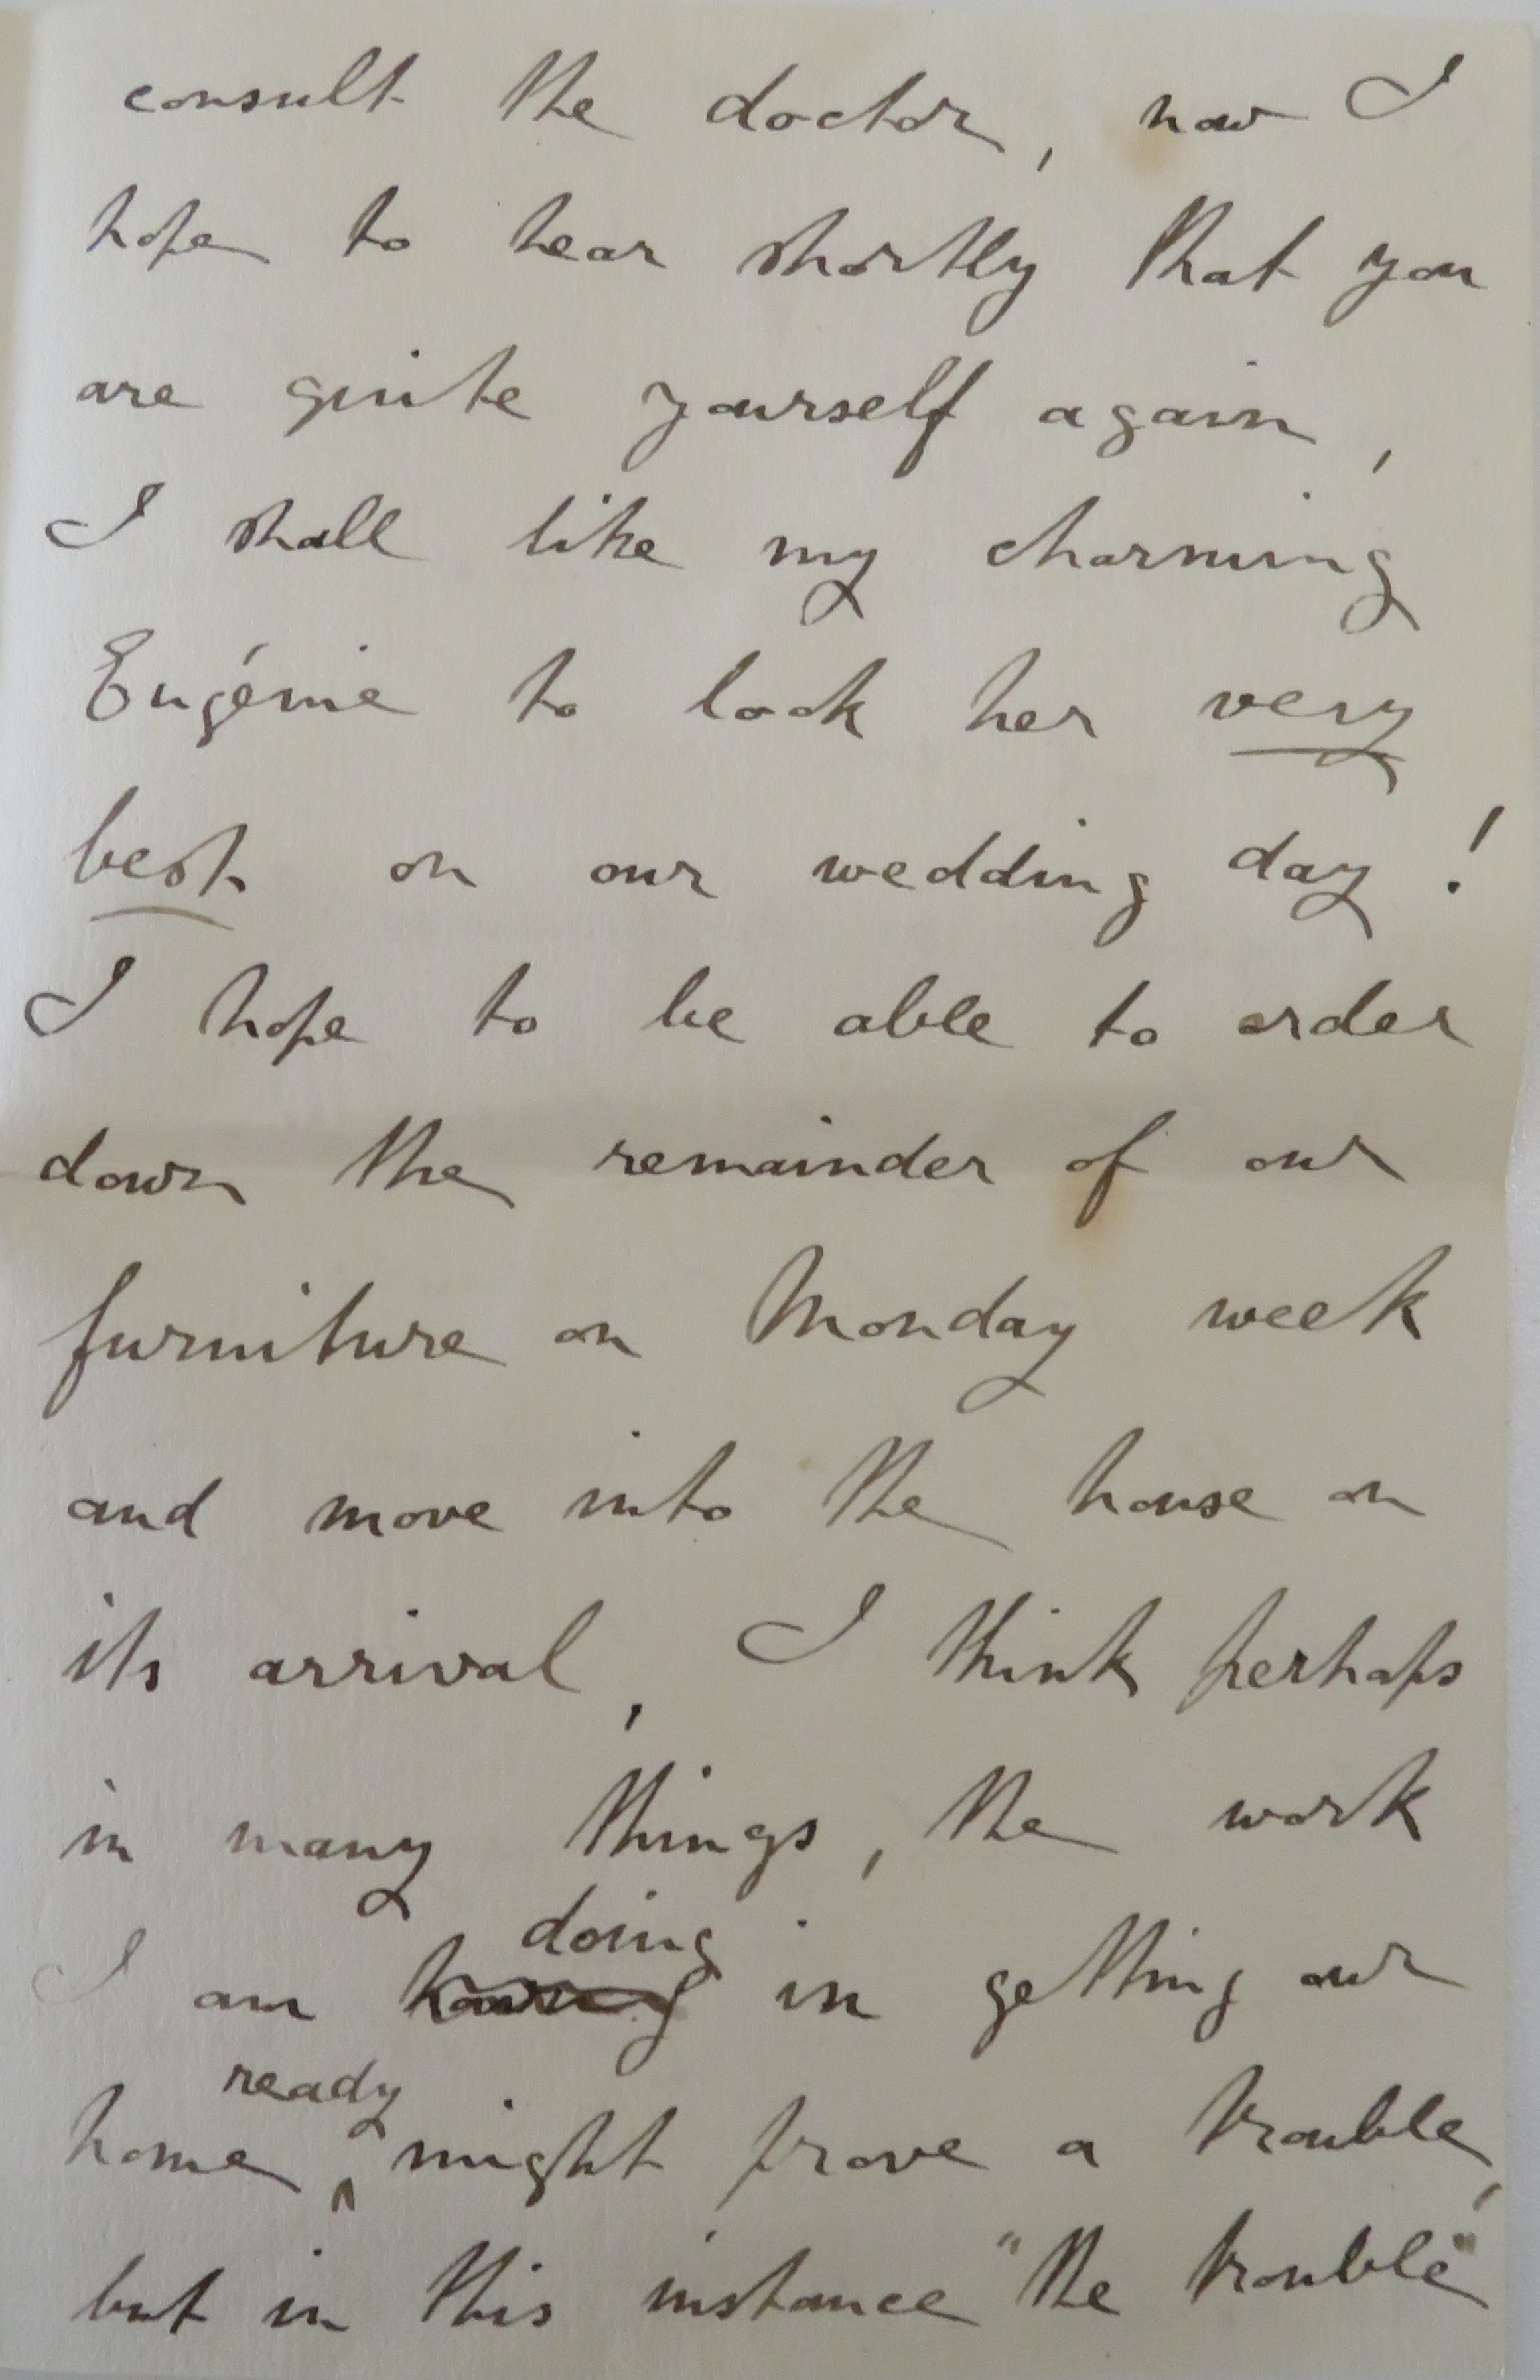 consult the doctor, now I
hope to hear shortly that you
are quite yourself again,
I shall like my charming
Eugénie to look her very
best on our wedding day!
I hope to be able to order
down the remainder of our
furniture on Monday week
and move into the house on
its arrival, I think perhaps
in many things, the work
doing
I am having in getting our
ready
home ^ might prove a trouble,
but in this instance "the trouble"